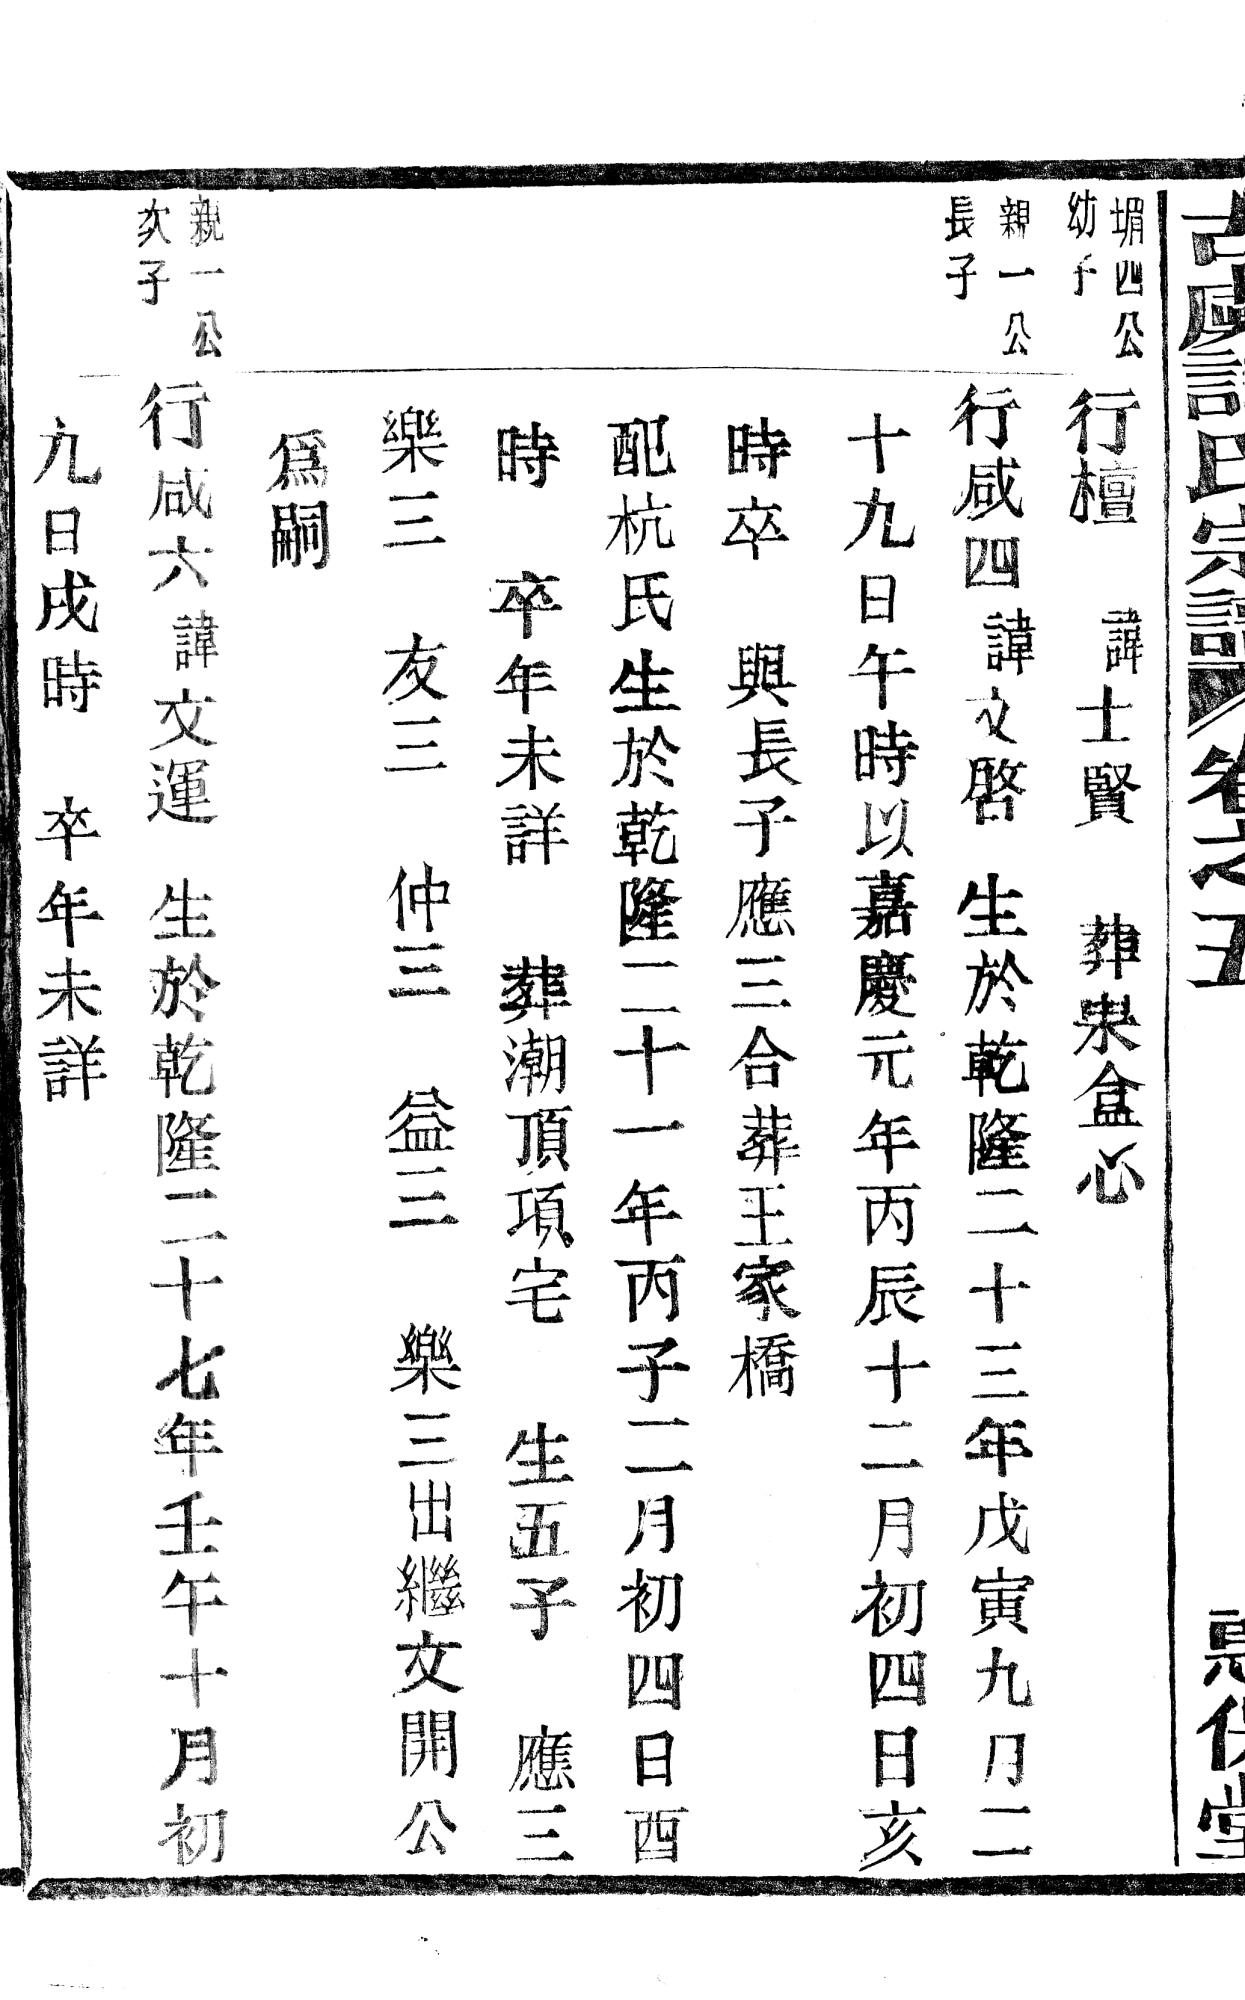 古虞許氏宗譜 卷之五 惠倹堂
堳四公幼子
行檀 諱士賢 葬泉盒心
親一公長子
行咸四諱文啓 生於乾隆二十三年戊寅九月二
十九日午時以嘉慶元年丙辰十二月初四日亥
時卒 與長子應三合葬王家橋
配杭氏生於乾隆二十一年丙子二月初四日酉
時 卒年未詳 葬潮頂項宅 生五子 應三
樂三 友三 仲三 益三 樂三出繼文開公
爲嗣
親一公次子
行咸六諱文運 生於乾隆二十七年壬午十月初
九日戌時 卒年未詳